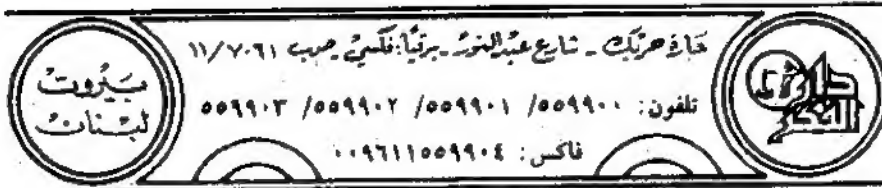 حَارة حريك - شارع عبد النور - برقيًا: فكسي - صب ١١/٧٠٦١
تلفون: ٥٥٩٩٠٠ /٥٥٩٩٠١ /٥٥٩٩٠٢ /٥٥٩٩٠٣
فاكس: ٠٠٩٦١١٥٥٩٩٠٤
دار الفكر
بَيْروت
لبنان